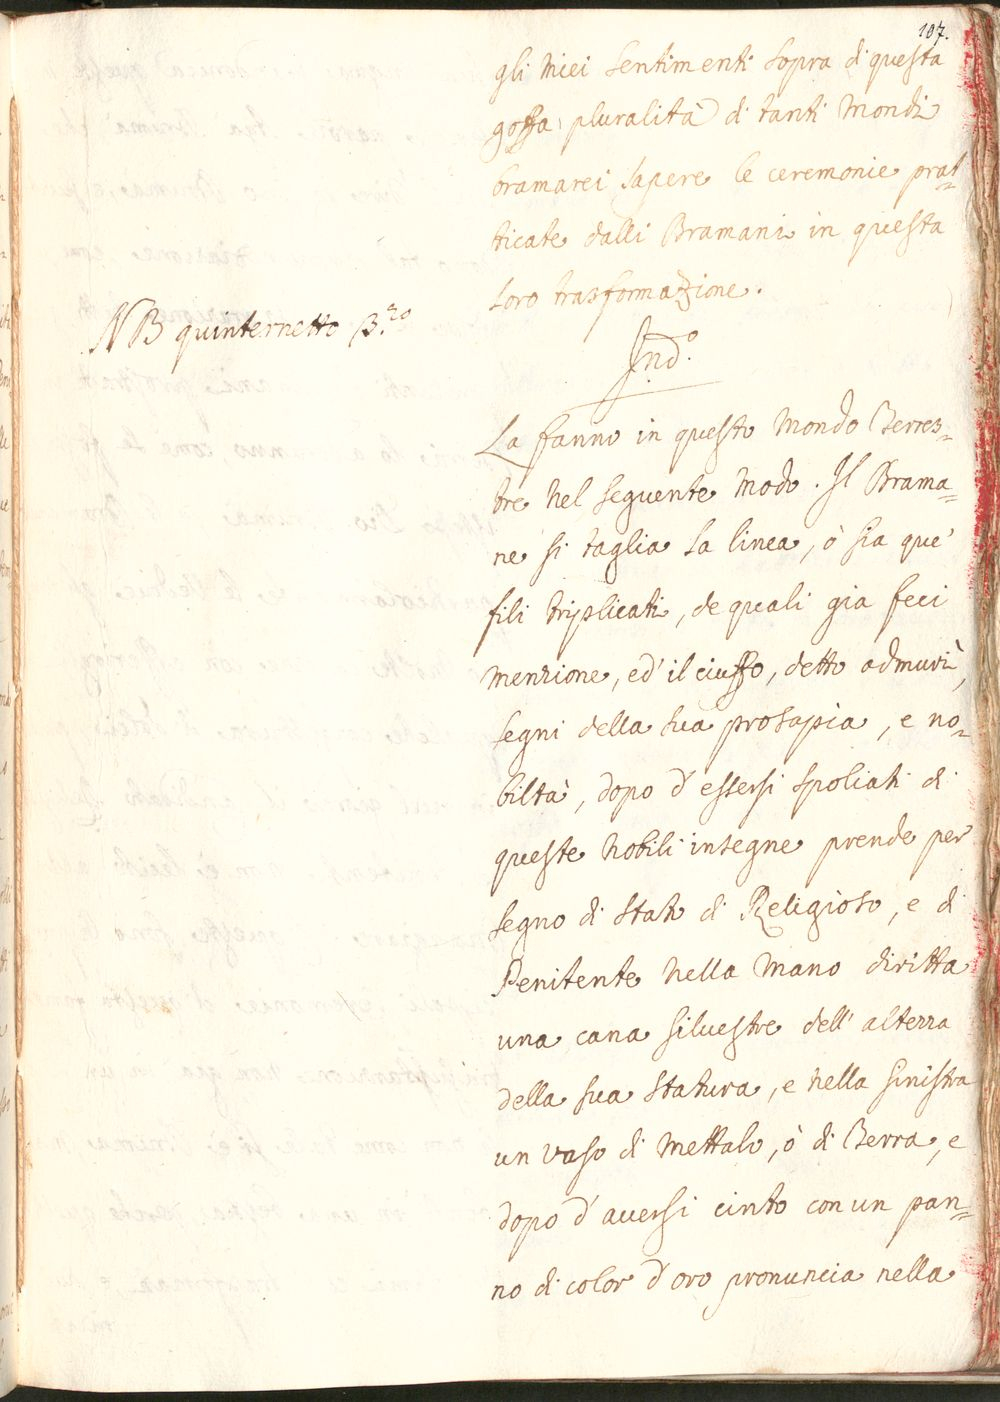 107.
gli miei sentimenti sopra di questa
goffa pluralità di tanti mondi
bramarei sapere le ceremonie prat=
ticate dalli Bramani in questa
loro trasformazione.
NB quinternetto 3.zo
Ind.o
La fanno in questo mondo Terres=
tre nel seguente modo. Il Brama=
ne si taglia la linea, ò sia que'
fili triplicati, de quali gia feci
menzione, ed' il ciuffo, detto admurì,
segni della sua prosapia, e no=
biltà, dopo d'essersi spoliati di
queste nobili insegne prende per
segno di stato di Religioso, e di
Penitente nella mano diritta
una cana silvestre dell' alterra
della sua statura, e nella sinistra
un vaso di mettalo, ò di Terra, e
dopo d'aversi cinto con un pan=
no di color d'oro pronuncia nella